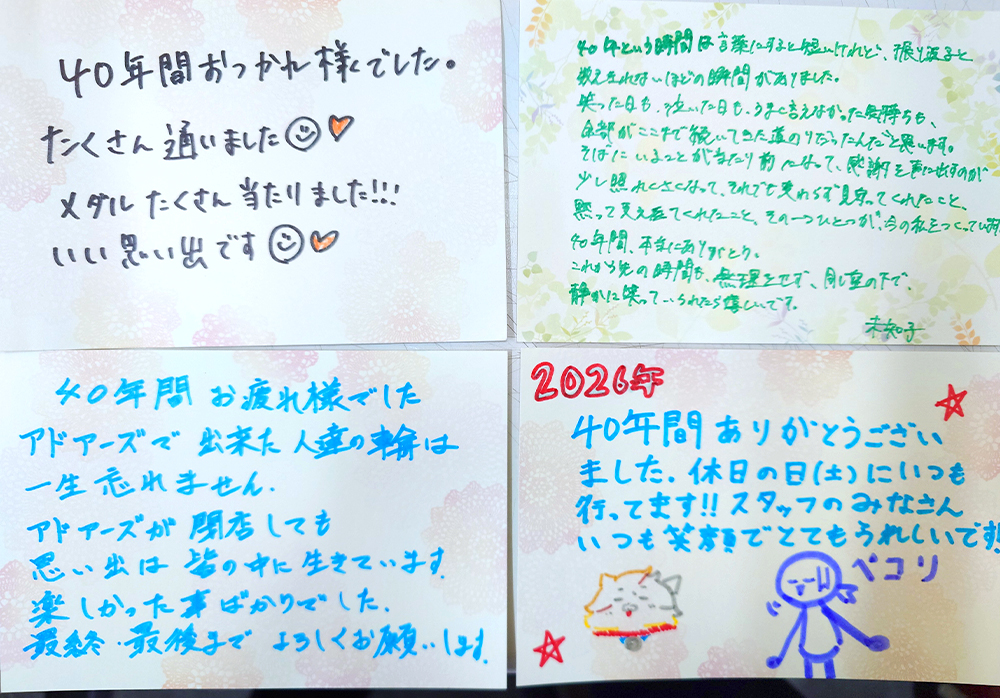 40年間おつかれ様でした。
たくさん通いました
メダルたくさん当たりました!!!
いい思い出です
40年という時間は言葉にすると短いけれど、振り返ると
数えきれないほどの瞬間がありました。
笑った日も、泣いた日も、うまく言えなかった気持ちも、
全部がここまで続いてきた道のりだったんだと思います。
そばにいることが当たり前になって、感謝を声に出すのが
少し照れくさくなって、それでも変わらず見守ってくれたこと、
黙って支え立てくれたこと、その一つひとつが、今の私をつくってい
40年間、本当にありがとう。
これから先の時間も、無理をせず、同じ空の下で、
静かに笑っていられたら嬉しいです。
未知子
40年間 お疲れ様でした
アドアーズで 出来た 人達の輪は
一生 忘れません.
アドアーズが 閉店しても
思い出は 皆の中に生きています.
楽しかった事ばかりでした.
最終・最後まで よろしくお願いします.
2026年
40年間ありがとうござい
ました. 休日の日(土)にいつも
行ってます!! スタッフのみなさん
いつも笑顔でとてもうれしいです!
ペコリ